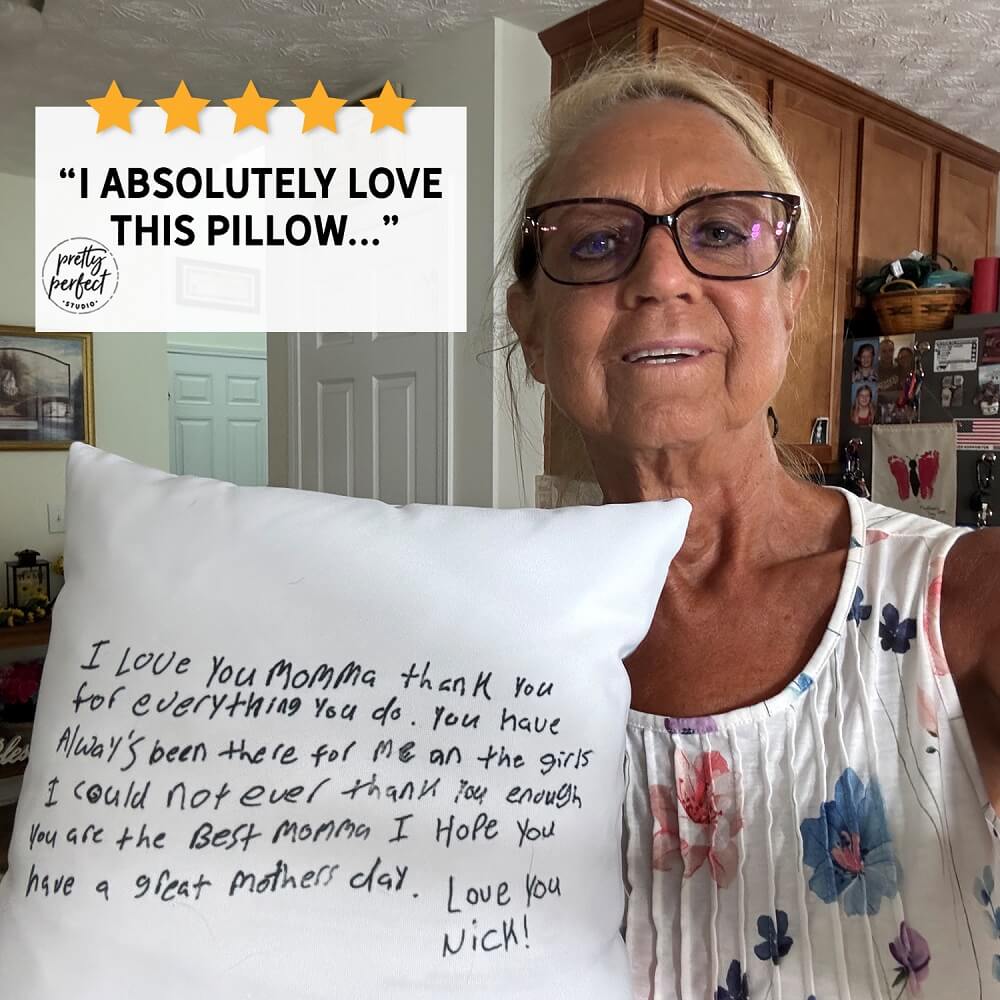 “I ABSOLUTELY LOVE
THIS PILLOW...”
pretty
perfect
•STUDIO•
I Love You Momma thank you
for everything You do. You have
Alway's been there for Me an the girls
I could not ever thank You enough
You are the Best Momma I Hope You
have a great mothers day.
Love You
Nick!